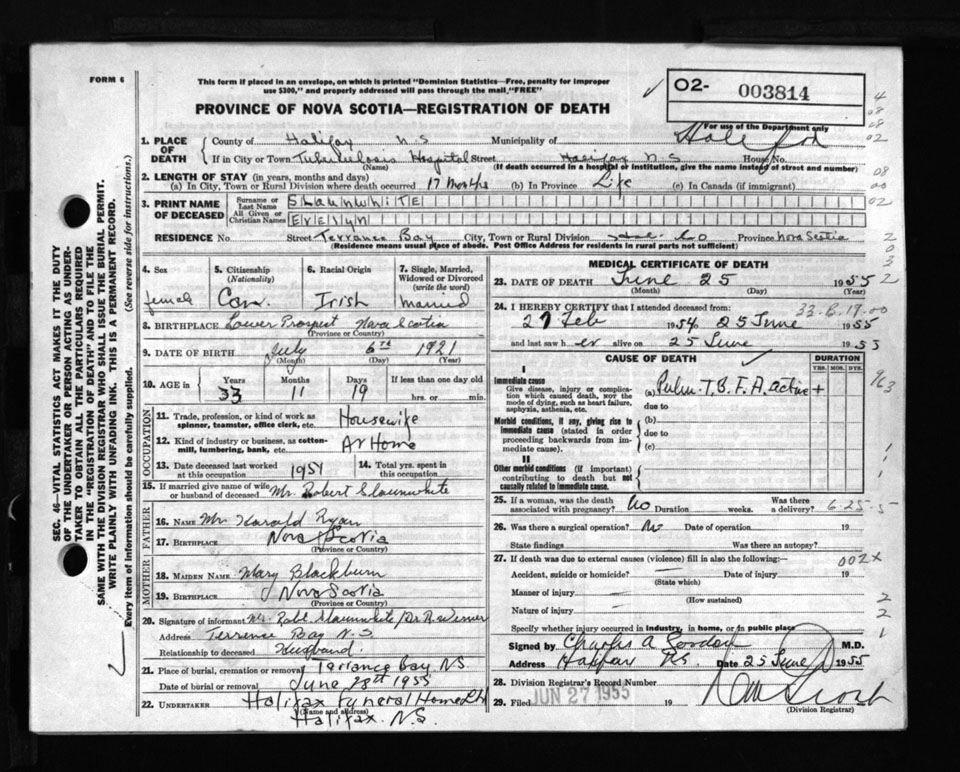 FORM 6
This form if placed in an envelope, on which is printed "Dominion Statistics—Free, penalty for improper
use $300," and properly addressed will pass through the mail, "FREE"
PROVINCE OF NOVA SCOTIA—REGISTRATION OF DEATH
O2- 003814
For use of the Department only
1. PLACE OF DEATH
County of Halifax N S Municipality of
If in City or Town Tuburulosis Hospital Street Halifax N.S House No.
(Name) (If death occurred in a hospital or institution, give the name instead of street and number)
2. LENGTH OF STAY (in years, months and days)
(a) In City, Town or Rural Division where death occurred 17 Months (b) In Province Life (c) In Canada (if immigrant)
3. PRINT NAME OF DECEASED
Surname or Last Name SLAUNWHITE
All Given or Christian Names EVELYN
RESIDENCE No. Street Terrance Bay City, Town or Rural Division Province Nova Scotia
(Residence means usual place of abode. Post Office Address for residents in rural parts not sufficient)
4. Sex female
5. Citizenship (Nationality) Can.
6. Racial Origin Irish
7. Single, Married, Widowed or Divorced (write the word) Married
8. BIRTHPLACE Lower Prospect Nova Scotia
(Province or Country)
9. DATE OF BIRTH July 6th 1921
(Month) (Day) (Year)
10. AGE in Years 33 Months 11 Days 19 If less than one day old
hrs. or min.
OCCUPATION
11. Trade, profession, or kind of work as
spinner, teamster, office clerk, etc. Housewife
12. Kind of industry or business, as cotton-
mill, lumbering, bank, etc. At Home
13. Date deceased last worked
at this occupation 1954
14. Total yrs. spent in
this occupation
15. If married give name of wife
or husband of deceased Mr. Robert Slaunwhite
FATHER
16. NAME Mr Harold Ryan
17. BIRTHPLACE Nova Scotia
(Province or Country)
MOTHER
18. MAIDEN NAME Mary Blackburn
19. BIRTHPLACE Nova Scotia
(Province or Country)
20. Signature of informant Mr. Robt. Slaunwhite
Address Terrence Bay N.S
Relationship to deceased Husband.
21. Place of burial, cremation or removal Terrance Bay N.S.
Date of burial or removal June 28th 1955
22. UNDERTAKER Halifax Funeral Home Ltd
(Name and address)
Halifax. N.S.
MEDICAL CERTIFICATE OF DEATH
23. DATE OF DEATH June 25 1955
(Month) (Day) (Year)
24. I HEREBY CERTIFY that I attended deceased from:
27 Feb 1954 25 June 1955
and last saw her alive on 25 June 1955
CAUSE OF DEATH
DURATION
YRS. MOS. DYS.
I
Immediate cause
Give disease, injury or complica-
tion which caused death, not the
mode of dying, such as heart failure,
asphyxia, asthenia, etc.
(a) Pulm. T.B. F.A. active +
due to
Morbid conditions, if any, giving rise to
immediate cause (stated in order
proceeding backwards from im-
mediate cause).
(b)
due to
(c)
II
Other morbid conditions (if important)
contributing to death but not
causally related to immediate cause.
25. If a woman, was the death
associated with pregnancy? No Duration weeks. Was there
a delivery?
26. Was there a surgical operation? No Date of operation 19
State findings Was there an autopsy?
27. If death was due to external causes (violence) fill in also the following:—
Accident, suicide or homicide? Date of injury 19
(State which)
Manner of injury
(How sustained)
Nature of injury
Specify whether injury occurred in industry, in home, or in public place
Signed by Charles A Gordon M.D.
Address Halifax N.S. Date 25 June 1955
28. Division Registrar's Record Number
29. Filed JUN 27 1955 19
(Division Registrar)
SEC. 46—VITAL STATISTICS ACT MAKES IT THE DUTY
OF THE UNDERTAKER OR PERSON ACTING AS UNDER-
TAKER TO OBTAIN ALL THE PARTICULARS REQUIRED
IN THE "REGISTRATION OF DEATH" AND TO FILE THE
SAME WITH THE DIVISION REGISTRAR WHO SHALL ISSUE THE BURIAL PERMIT.
WRITE PLAINLY WITH UNFADING INK. THIS IS A PERMANENT RECORD.
Every item of information should be carefully supplied. (See reverse side for instructions.)